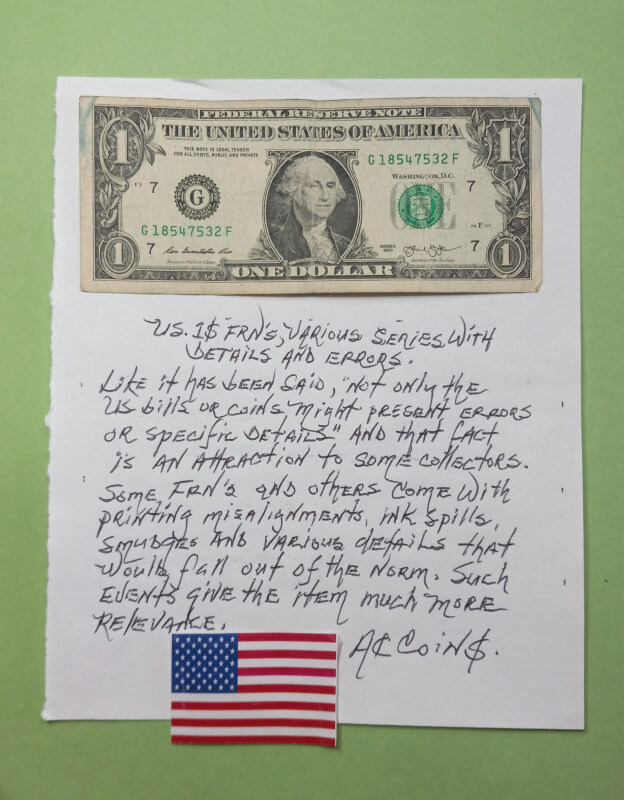 FEDERAL RESERVE NOTE
THE UNITED STATES OF AMERICA
THIS NOTE IS LEGAL TENDER
FOR ALL DEBTS, PUBLIC AND PRIVATE
G 18547532 F
WASHINGTON, D.C.
1
1
7
7
G
ONE
G 18547532 F
7
7
SERIES
1
1
ONE DOLLAR
US. 1$ FRN's, VARIOUS SERIES, WITH
DETAILS AND ERRORS.
Like it has been said, "Not only the
US bills or coins might present errors
or specific details" and that fact
is an attraction to some collectors.
Some FRN's and others come with
printing misalignments, ink spills,
smudges and various details that
would fall out of the norm. Such
events give the item much more
relevance.
A¢ Coin$.